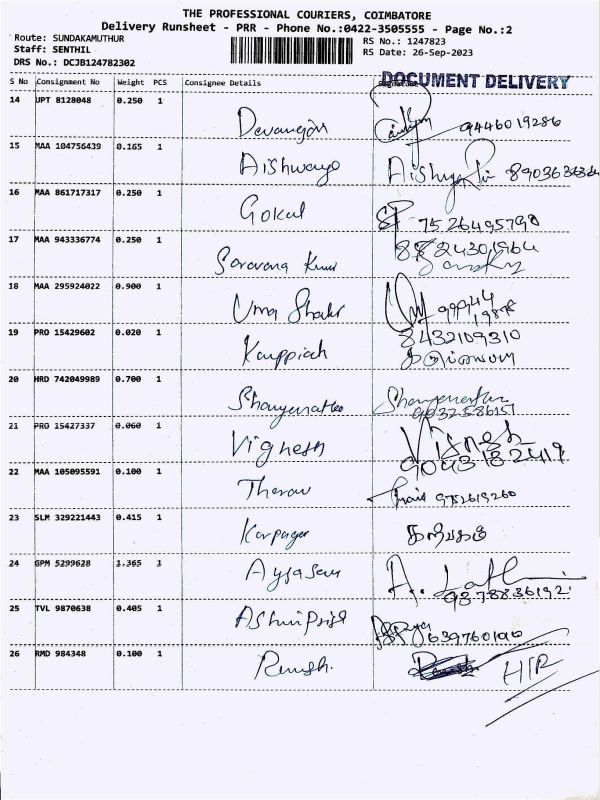 THE PROFESSIONAL COURIERS, COIMBATORE
Delivery Runsheet - PRR - Phone No.:0422-3505555 - Page No.:2
Route: SUNDAKAMUTHUR
RS No.: 1247823
Staff: SENTHIL
RS Date: 26-Sep-2023
DRS No.: DCJB124782302
DOCUMENT DELIVERY
S No Consignment No Weight PCS Consignee Details
14 UPT 8128048 0.250 1
Devangan 9446019286
15 MAA 104756439 0.165 1
Aishwarya Aishwarya
16 MAA 861717317 0.250 1
Gokul 7526495790
17 MAA 943336774 0.250 1
8824301964
Saravana Kumar
18 MAA 295924022 0.900 1
Uma Shakr 99944
19878
19 PRO 15429602 0.020 1
8432109310
Karuppiah கருப்பையா
20 HRD 742049989 0.700 1
21 PRO 15427337 0.060 1
Vignesh Vignesh
9043182419
22 MAA 105095591 0.100 1
Therow
23 SLM 329221443 0.415 1
Karpagar கற்பகம்
24 GPM 5299628 1.365 1
9878836192
25 TVL 9870638 0.405 1
26 RMD 984348 0.100 1
Ramesh.